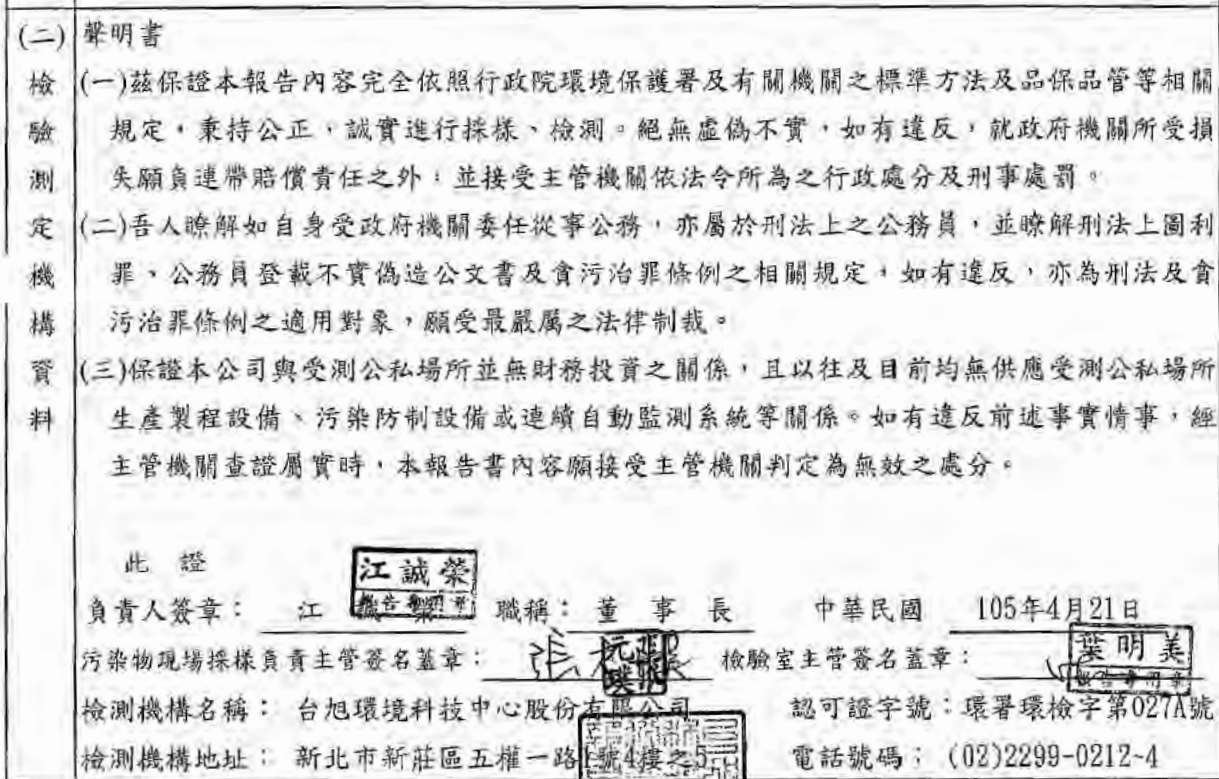 (二)檢驗測定機構資料
聲明書
(一)茲保證本報告內容完全依照行政院環境保護署及有關機關之標準方法及品保品管等相關
規定，秉持公正、誠實進行採樣、檢測。絕無虛偽不實，如有違反，就政府機關所受損
失願負連帶賠償責任之外，並接受主管機關依法令所為之行政處分及刑事處罰。
(二)吾人瞭解如自身受政府機關委任從事公務，亦屬於刑法上之公務員，並瞭解刑法上圖利
罪、公務員登載不實偽造公文書及貪污治罪條例之相關規定，如有違反，亦為刑法及貪
污治罪條例之適用對象，願受最嚴厲之法律制裁。
(三)保證本公司與受測公私場所並無財務投資之關係，且以往及目前均無供應受測公私場所
生產製程設備、污染防制設備或連續自動監測系統等關係。如有違反前述事實情事，經
主管機關查證屬實時，本報告書內容願接受主管機關判定為無效之處分。
此 證
江誠榮
負責人簽章： 江 職稱： 董 事 長 中華民國 105年4月21日
污染物現場採樣負責主管簽名蓋章： 檢驗室主管簽名蓋章： 葉明美
檢測機構名稱： 台旭環境科技中心股份有限公司 認可證字號：環署環檢字第027A號
檢測機構地址： 新北市新莊區五權一路1號4樓之5 電話號碼： (02)2299-0212~4